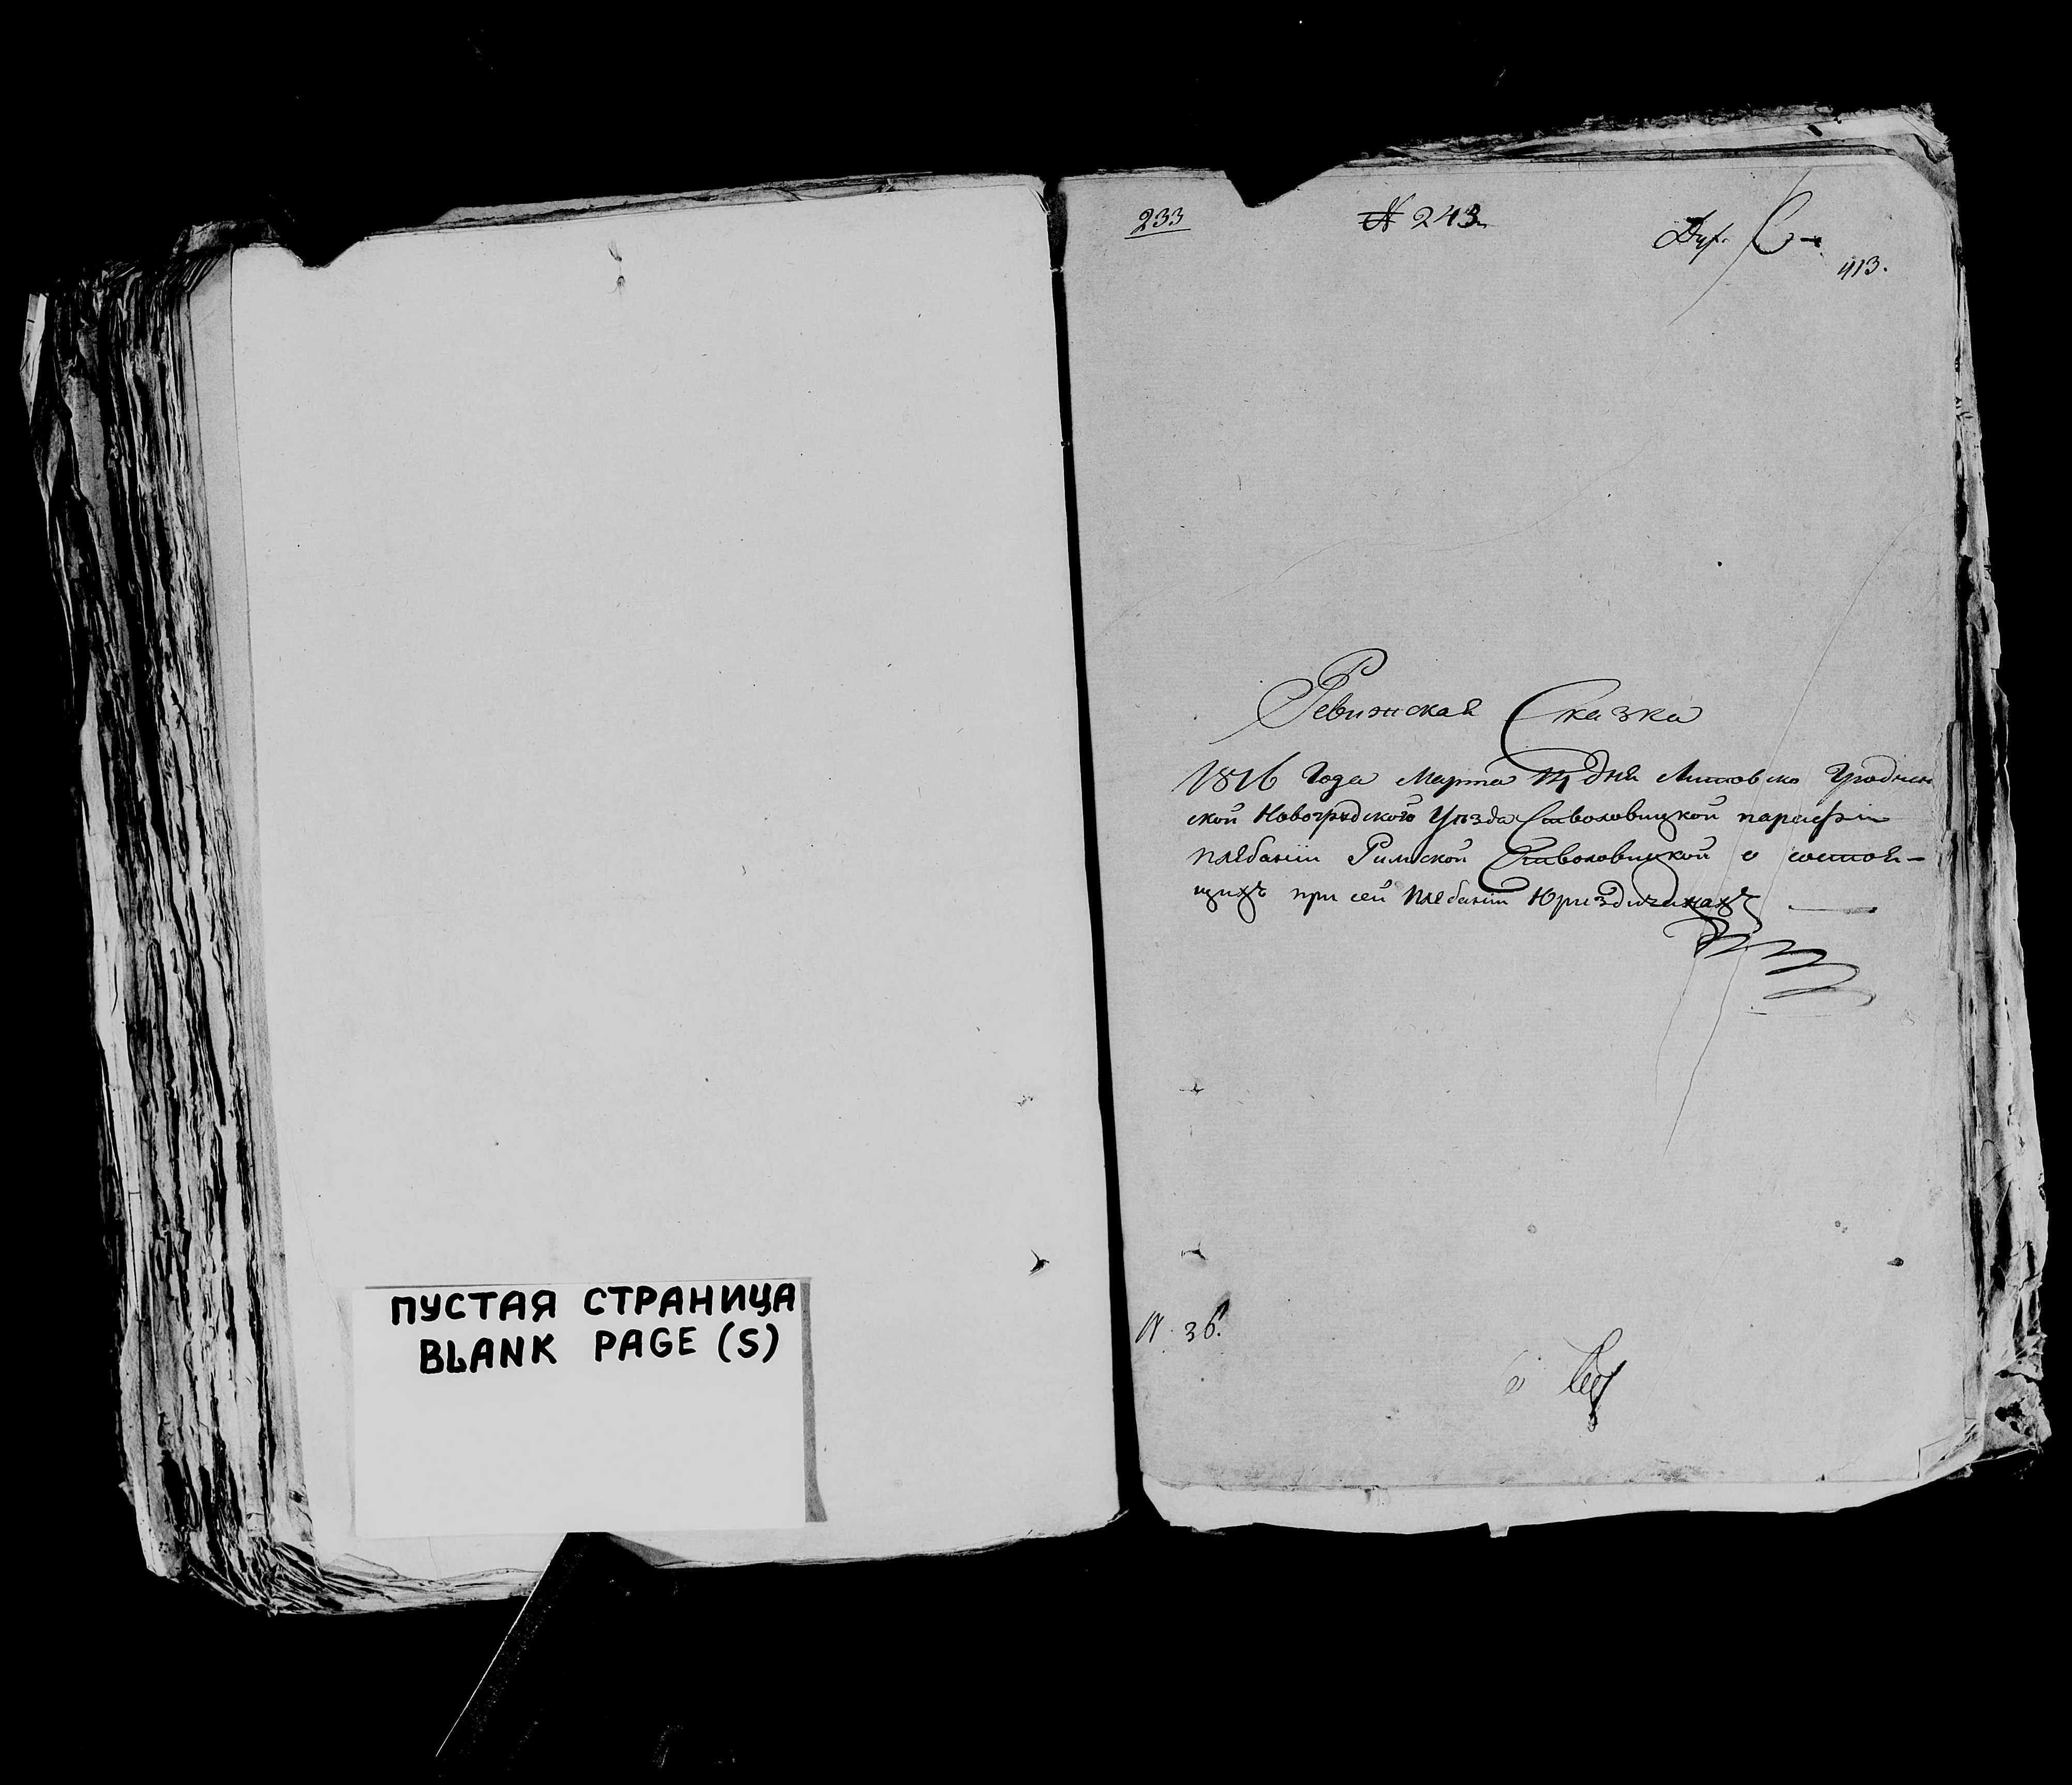 ПУСТАЯ СТРАНИЦА
BLANK PAGE (S)
233
№ 243.
413.
Ревижская Сказка
1816 Года Марта 14 дня Литовско Гроднен
ской Новогрудского Уѣзда Столовицкой парафіи
плебаніи Римской Столовицкой о состоя-
щихъ при сей плебаніи Юриздичанахъ
N. 36.